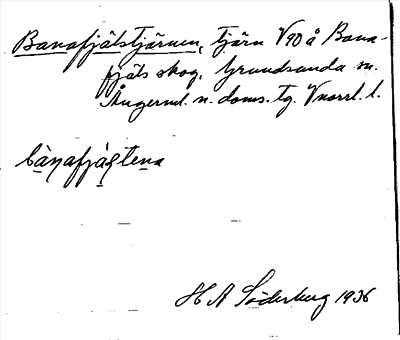 Banafjälstjärnen, tjärn V90 å Bana-
fjäls skog, Grundsunda sn.
Ångerml. n. doms. tg. Vnorrl. l.
bànafjàlstena
H A Söderberg 1936